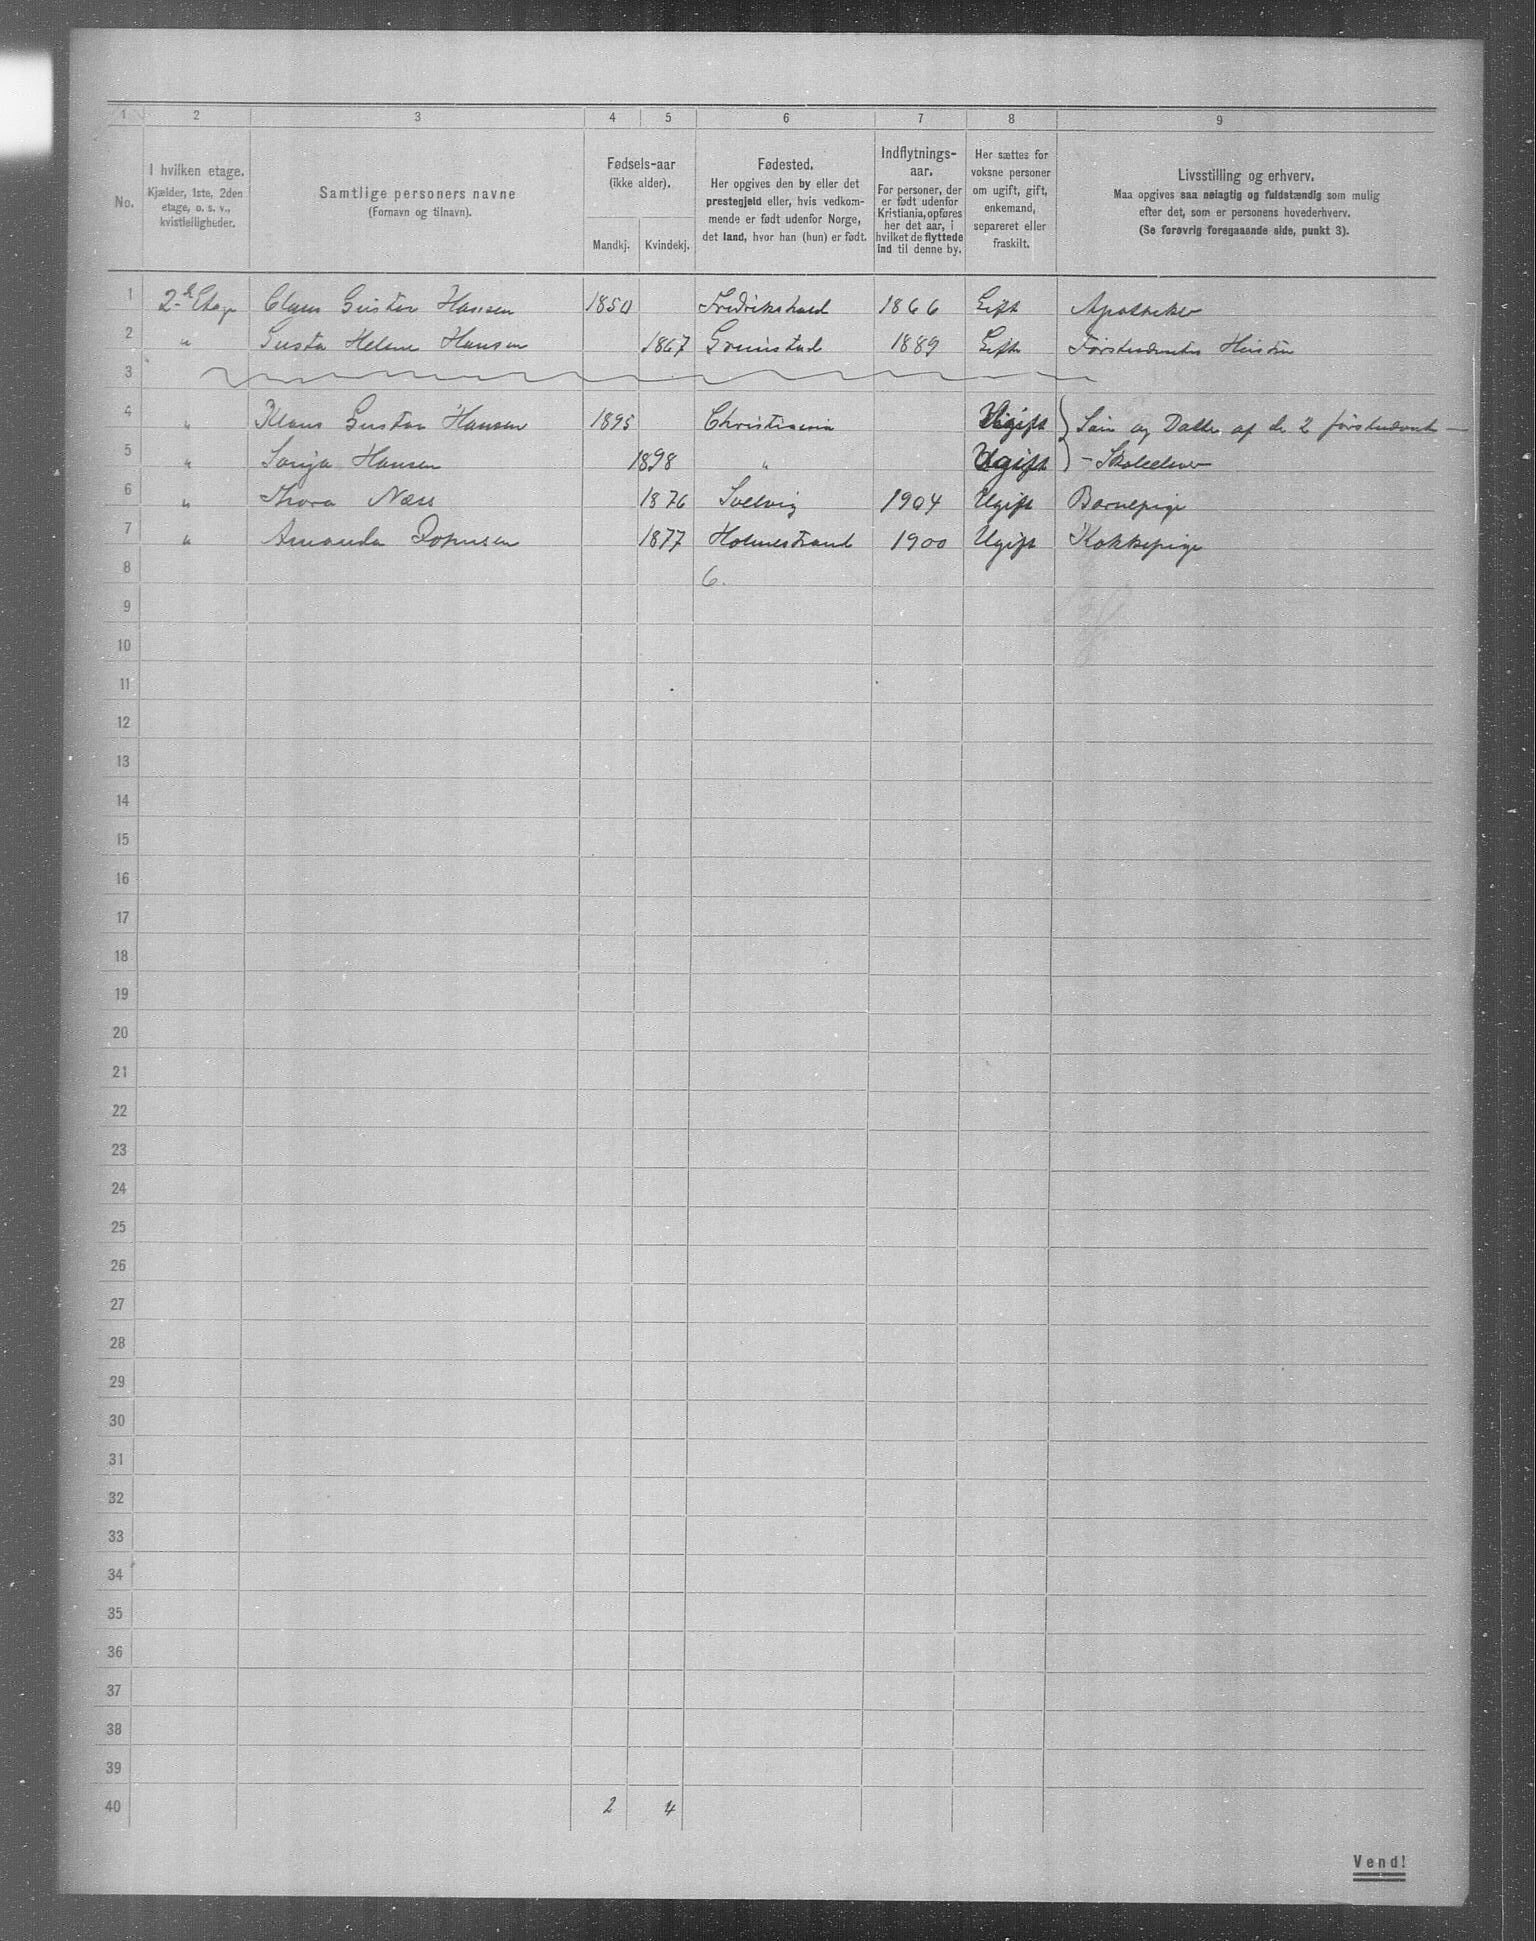 1 2 3 4 5 6 7 8 9
No.
I hvilken etage.
Kjælder, 1ste, 2den
etage, o. s. v.,
kvistleiligheder.
Samtlige personers navne
(Fornavn og tilnavn).
Fødsels-aar
(ikke alder).
Mandkj. Kvindekj.
Fødested.
Her opgives den by eller det
prestegjeld eller, hvis vedkom-
mende er født udenfor Norge,
det land, hvor han (hun) er født.
Indflytnings-
aar.
For personer, der
er født udenfor
Kristiania, opføres
her det aar, i
hvilket de flyttede
ind til denne by.
Her sættes for
voksne personer
om ugift, gift,
enkemand,
separeret eller
fraskilt.
Livsstilling og erhverv.
Maa opgives saa nøiagtig og fuldstændig som mulig
efter det, som er personens hovederhverv.
(Se forøvrig foregaaende side, punkt 3).
1 2 Etage Claus Gustav Hansen 1850 Fredrikshald 1866 Gift Apotheker
2 " Helene Hansen 1867 Grimstad 1889 Gift Førstnævntes Hustru
3
4 " Klaus Gustav Hansen 1895 Christiania Ugift Søn og Datter af de 2 førstnævnte —
5 " Sonja Hansen 1898 " Ugift – Skoleelever
6 " Thora Næss 1876 Svelvig 1904 Ugift Barnepige
7 " Amanda Johnsen 1877 Holmestrand 1900 Ugift Kokkepige
8 6.
9
10
11
12
13
14
15
16
17
18
19
20
21
22
23
24
25
26
27
28
29
30
31
32
33
34
35
36
37
38
39
40 2 4
Vend!